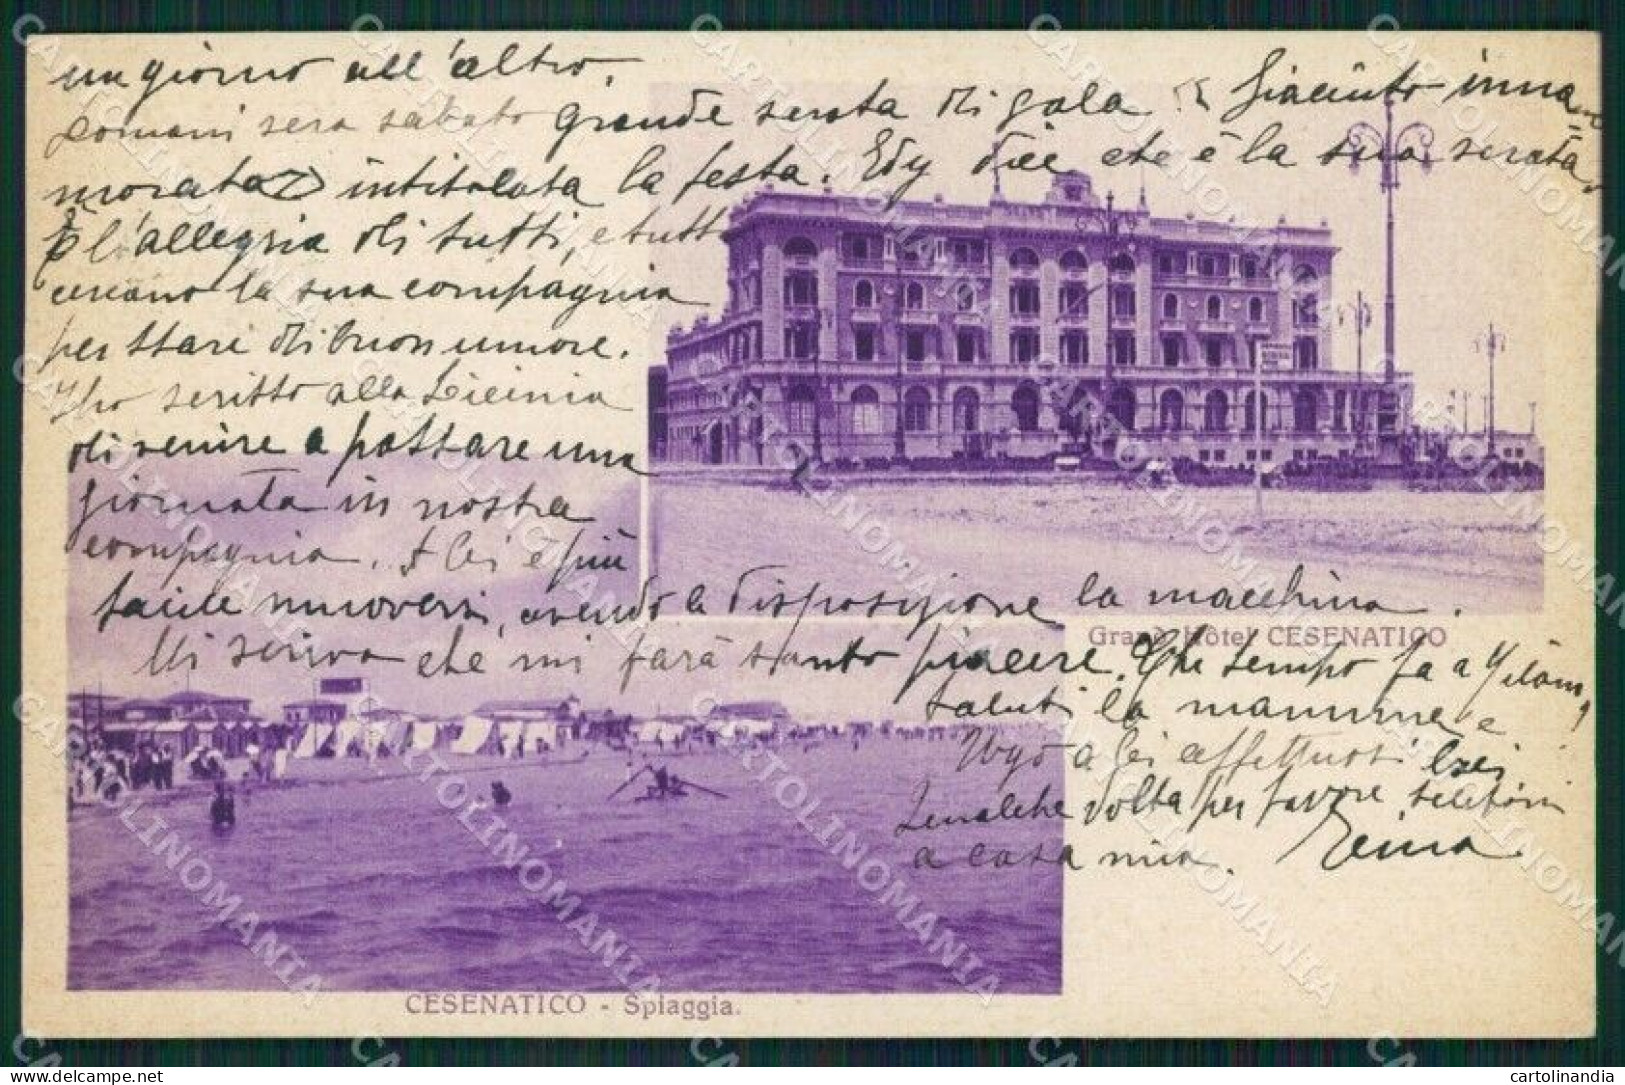 un giorno all'altro.
Domani sera sabato grande serata di gala "Giacinto inna-
morato" intitolata la festa. Edy dice che è la sua serata.
È l'allegria di tutti, e tutti
cercano la sua compagnia
per stare di buon umore.
Ho scritto alla Licinia
di venire a passare una
giornata in nostra
compagnia. A lei è più
facile muoversi, avendo a disposizione la macchina.
Mi scriva che mi farà tanto piacere. Che tempo fa a Milano?
Saluti la mamma e
Ugo a lei affettuosi
Qualche volta per favore telefoni
a casa mia.
Grand Hôtel CESENATICO
CESENATICO - Spiaggia.
CARTOLINOMANIA
cartolinandia
delcampe.net